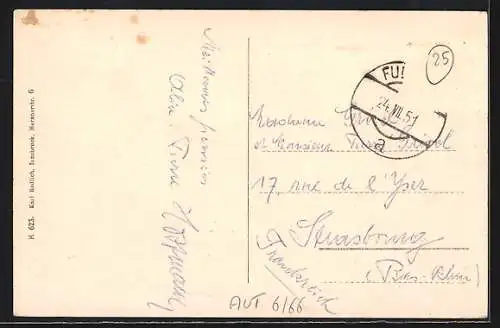 H 623. Karl Redlich, Innsbruck, Hormayrstr. 6
Meilleures pensées
Hoffmann
25
FUL
24.VII.51
a
Madame
et Monsieur
17, rue de l'Yser
Strasbourg
(Bas-Rhin)
Frankreich
AUT 6/66